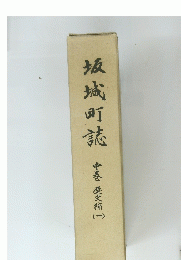 坂城町誌
中巻 歴史編
(一)